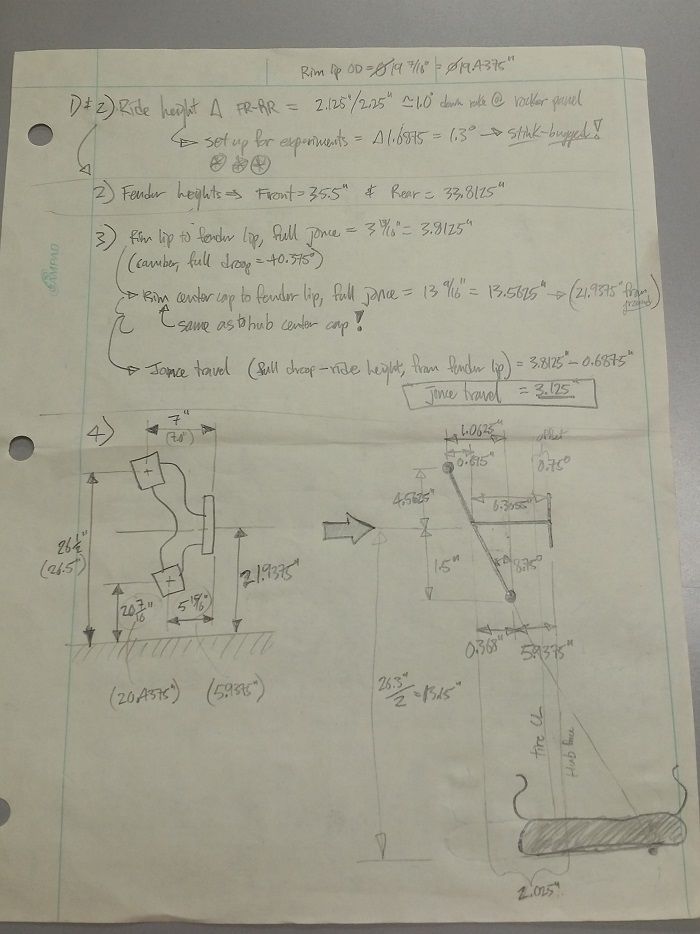 Rim lip OD = Ø19 7/16" = Ø19.4375"
1) & 2) Ride height Δ FR-RR = 2.125"/2.25" ≃ 1.0° down rake @ rocker panel
set up for experiments = Δ1.6875 = 1.3° → stink-bugged!
2) Fender heights ⇒ Front = 35.5" & Rear = 33.8125"
3) Rim lip to fender lip, full jonce = 3 13/16" = 3.8125"
(camber, full droop = +0.375°)
Rim center cap to fender lip, full jonce = 13 9/16" = 13.5625" → (21.9375" from ground)
same as to hub center cap!
Jonce travel (full droop - ride height, from fender lip) = 3.8125" - 0.6875"
Jonce travel = 3.125"
AMPAD
4)
7"
(7.0")
26 1/2"
(26.5")
20 7/16"
5 15/16"
21.9375"
(20.4375") (5.9375")
1.0625"
offset
0.75"
4.5625"
1.5"
8.75°
0.368" 5.9375"
26.3"/2 = 13.15"
tire CL
Hub face
2.025"